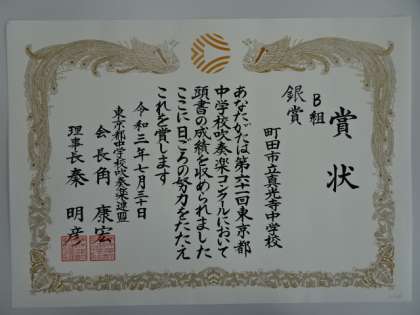 賞状
B組
銀賞
町田市立真光寺中学校
あなたがたは第六十一回東京都
中学校吹奏楽コンクールにおいて
頭書の成績を収められました
ここに日ごろの努力をたたえ
これを賞します
令和三年七月三十日
東京都中学校吹奏楽連盟
会長 角 康宏
理事長 秦 明彦